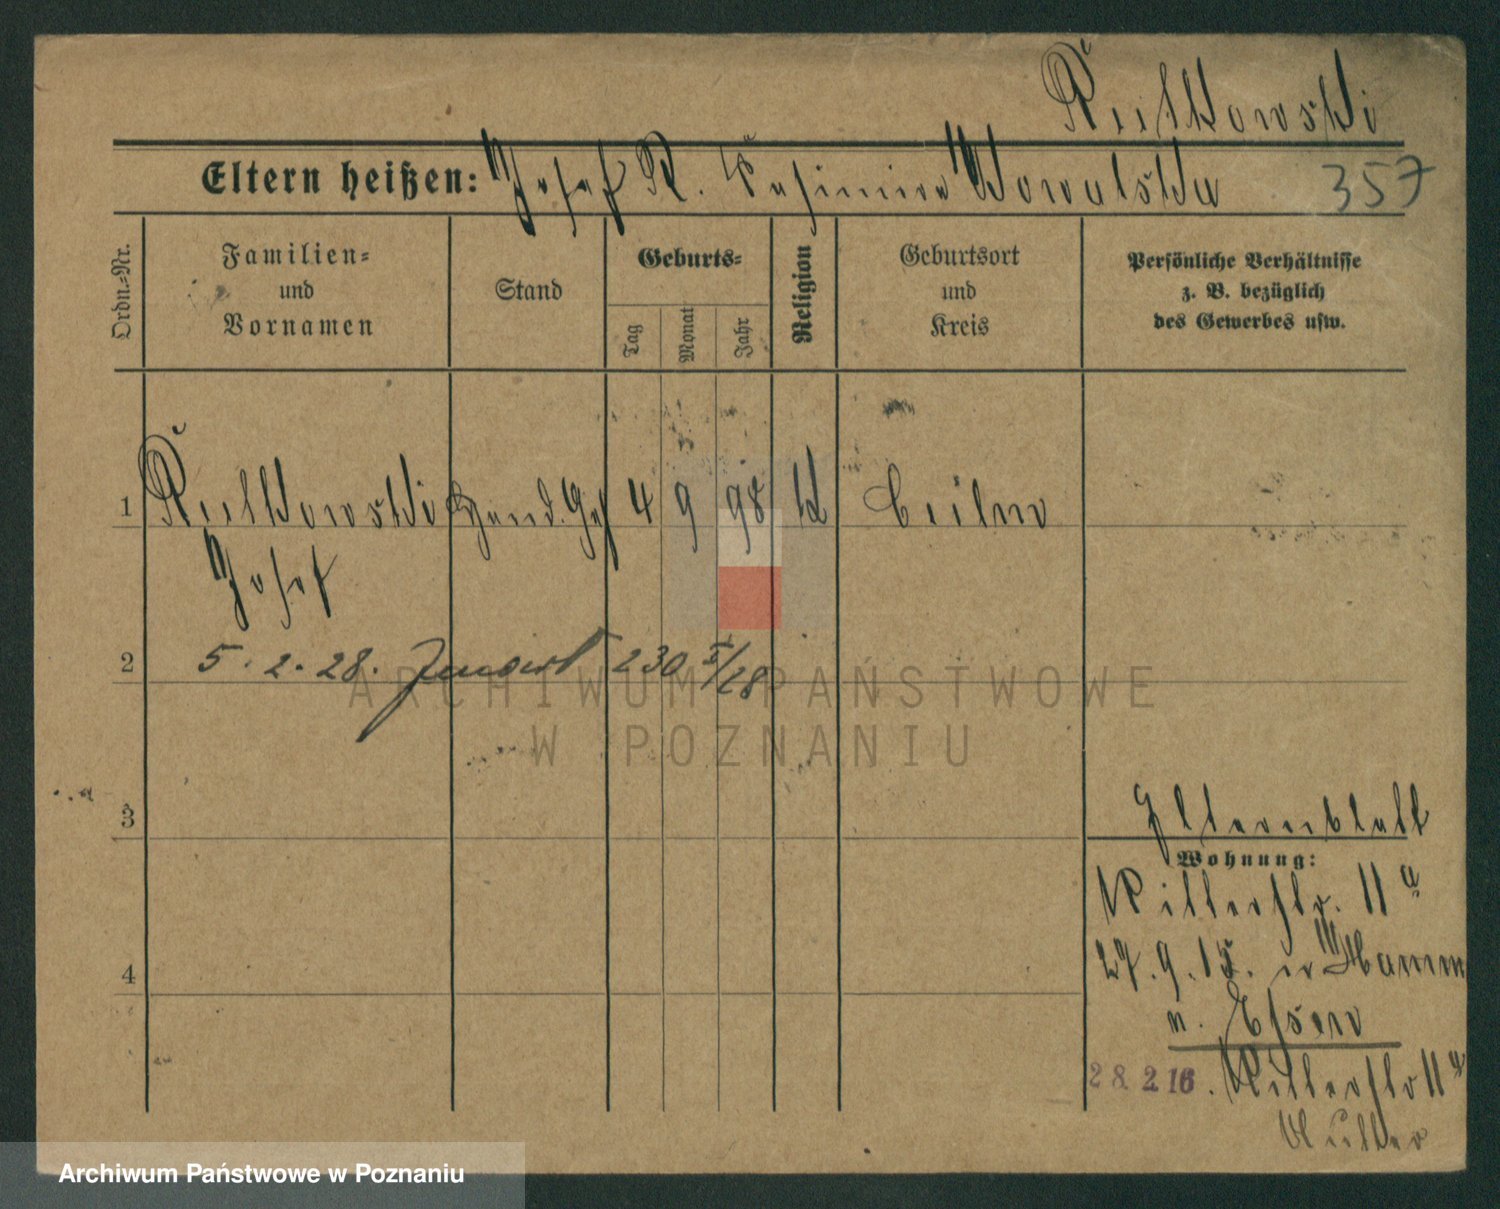 Rutkowski
Eltern heißen: Josef R. Kasimira Kowalska 357
Ordn.-Nr.
Familien- und Vornamen
Stand
Geburts-
Tag
Monat
Jahr
Religion
Geburtsort und Kreis
Persönliche Verhältnisse z. B. bezüglich des Gewerbes usw.
1 Rutkowski Hand. Geh 4 9 98 k
Josef
2 5. 2. 28. 230 I/28
3
Elternblatt
Wohnung:
Ritterstr. 11a
4
27. 9. 15. n Hamm
n. Essen
28. 2 16. Ritterstr 11a
Mutter
ARCHIWUM PAŃSTWOWE
W POZNANIU
Archiwum Państwowe w Poznaniu